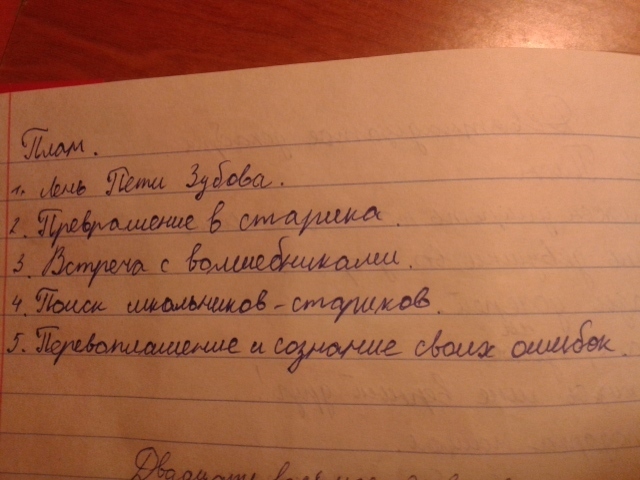 План.
1. Лень Пети Зубова.
2. Превращение в старика.
3. Встреча с волшебниками.
4. Поиск школьников-стариков.
5. Перевоплащение и сознание своих ошибок.